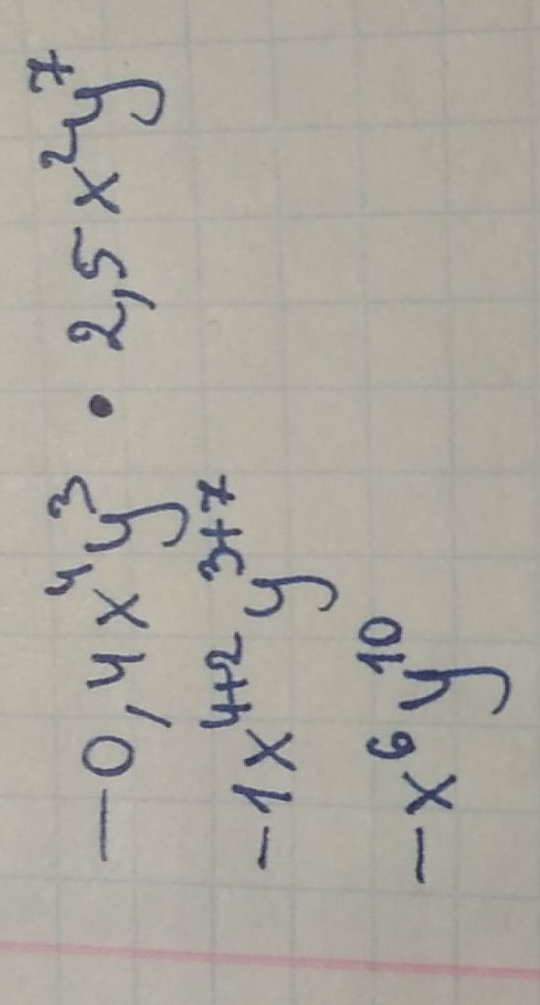 -0,4x⁴y³ • 2,5x²y⁷
-1x⁴⁺²y³⁺⁷
-x⁶y¹⁰